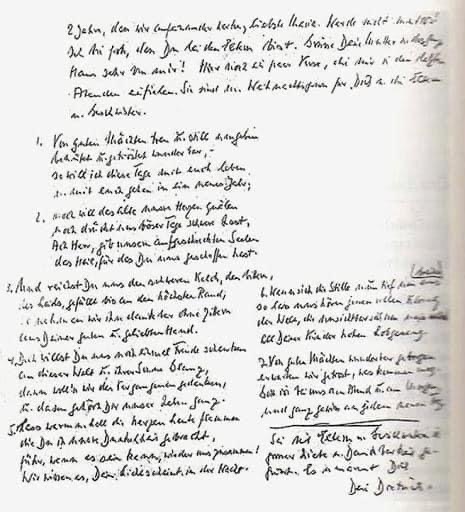 2 Jahre, dass wir aufeinander warten, liebste Maria. Werde nicht mutlos!
Ich bin froh, dass Du bei den Eltern bist. Grüsse Deine Mutter u. das ganze
Haus sehr von mir! Hier noch ein paar Verse, die mir in den letzten
Abenden einfielen. Sie sind der Weihnachtsgruss für Dich u. die Eltern
u. Geschwister.
1. Von guten Mächten treu u. still umgeben
behütet u. getröstet wunderbar, –
so will ich diese Tage mit euch leben
und mit euch gehen in ein neues Jahr;
2. noch will das alte unsre Herzen quälen
noch drückt uns böser Tage schwere Last,
Ach Herr, gib unsern aufgescheuchten Seelen
das Heil, für das Du uns geschaffen hast.
3. Und reichst Du uns den schweren Kelch, den bittern,
des Leids, gefüllt bis an den höchsten Rand,
so nehmen wir ihn dankbar ohne Zittern
aus Deiner guten u. geliebten Hand.
4. Doch willst Du uns noch einmal Freude schenken
an dieser Welt u. ihrer Sonne Glanz,
dann woll'n wir des Vergangenen gedenken,
u. dann gehört Dir unser Leben ganz.
5. Lass warm u. hell die Kerzen heute flammen
die Du in unsre Dunkelheit gebracht,
führ, wenn es sein kann, wieder uns zusammen!
Wir wissen es, Dein Licht scheint in der Nacht.
6. Wenn sich die Stille nun tief um uns
so lass uns hören jenen vollen Klang
der Welt, die unsichtbar sich um uns
all Deiner Kinder hohen Lobgesang.
7. Von guten Mächten wunderbar geborgen
erwarten wir getrost, was kommen mag.
Gott ist bei uns am Abend u. am Morgen
und ganz gewiss an jedem neuen Tag.
Sei mit Eltern u. Geschwistern in
grosser Liebe u. Dankbarkeit ge-
grüsst. Es umarmt Dich
Dein Dietrich